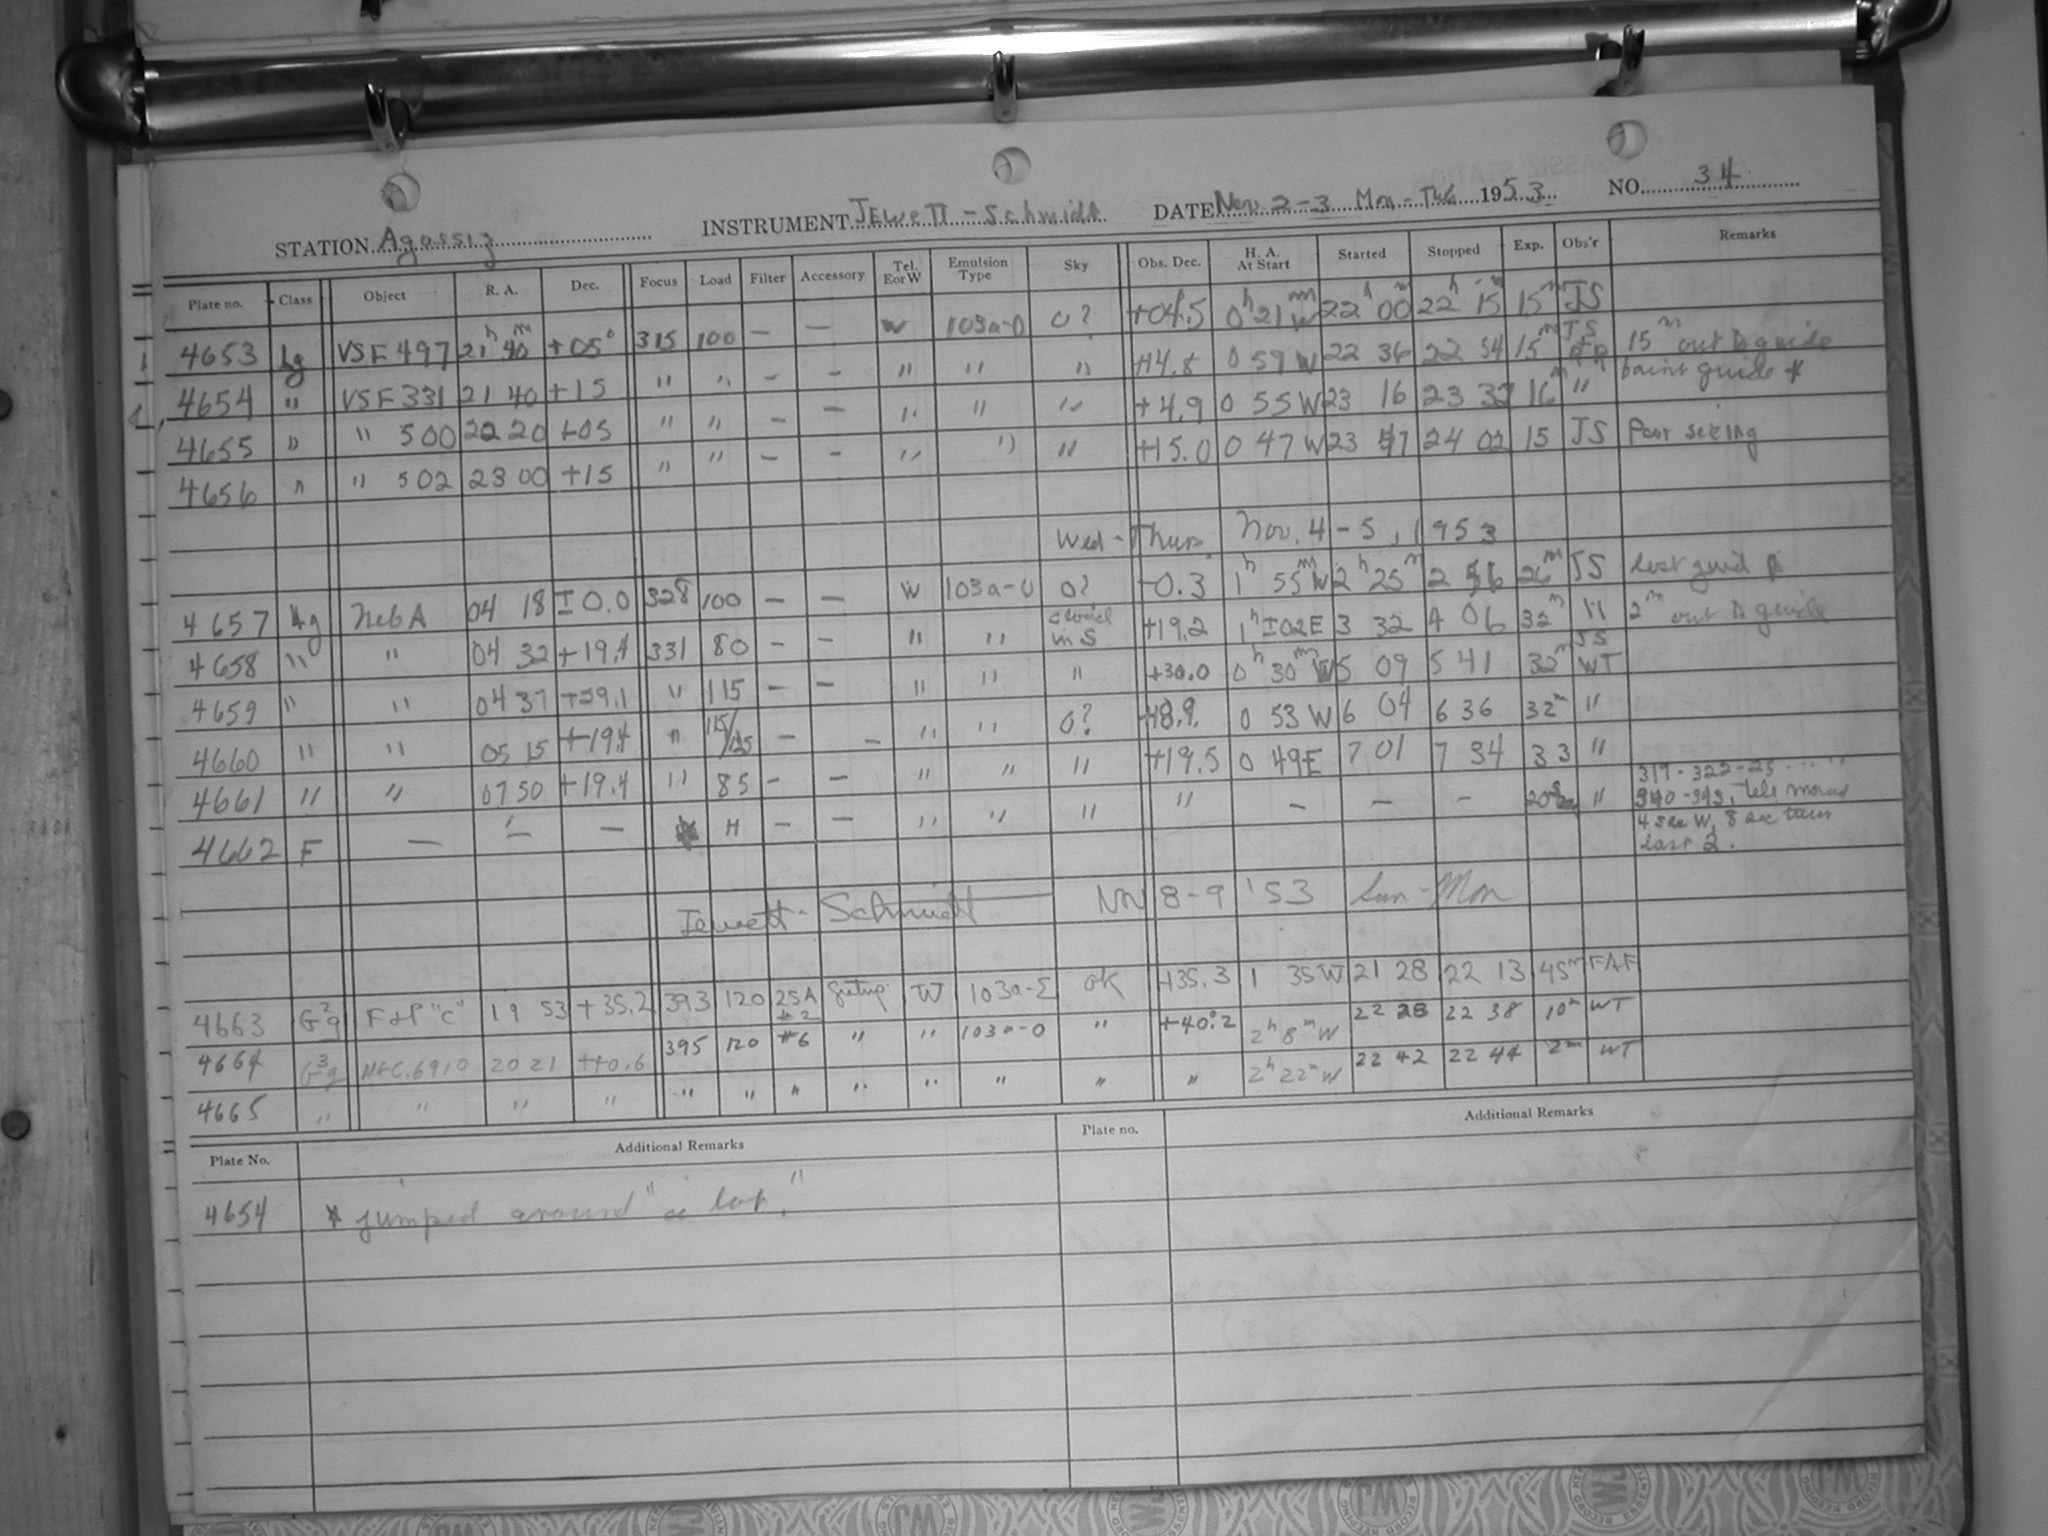 STATION Agassiz INSTRUMENT Jewett-Schmidt DATE Nov. 2-3 Mon-Tue 1953 NO. 34
Plate no. Class Object R. A. Dec. Focus Load Filter Accessory Tel. E or W Emulsion Type Sky Obs. Dec. H. A. At Start Started Stopped Exp. Obs'r Remarks
4653 Lg VSF 497 21h 40m +05° 315 100 - - W 103a-O 0? +04.5 0h 21m W 22h 00m 22h 15m 15m JS
4654 " VSF 331 21 40 +15 " " - - " " " +14.8 0 59 W 22 36 22 54 15m JS 15m out to guide faint guide *
4655 " " 500 22 20 +05 " " - - " " " +4.9 0 55 W 23 16 23 32 16m "
4656 " " 502 23 00 +15 " " - - " " " +15.0 0 47 W 23 47 24 02 15 JS Poor seeing
Wed-Thurs Nov. 4-5, 1953
4657 Lg Neb A 04 18 ±0.0 328 100 - - W 103a-O 0? -0.3 1h 55m W 2h 25m 2 26m JS lost guid
4658 " " 04 32 +19.4 331 80 - - " " cloud in S +19.2 1h ±02E 3 32 4 06 32m " 2m out to guide
4659 " " 04 37 +29.1 " 115 - - " " " +30.0 0h 30m W 5 09 5 41 32m JS WT
4660 " " 05 15 +19.4 " 115/125 - - " " 0? +18.9 0 53 W 6 04 6 36 32m "
4661 " " 07 50 +19.4 " 85 - - " " " +19.5 0 49E 7 01 7 34 33 "
4662 F - - - H - - " " " " - - - 20 "
319-322-25 " "
340-343, tele moved
4 sec W, 8 sec turn
last 2.
Jewett-Schmidt Nov 8-9 '53 Sun-Mon
4663 G2g F&P "C" 19 53 +35.2 393 120 25A #2 Getup W 103a-E ok +35.3 1 35 W 21 28 22 13 45m FAF
4664 G3g NGC.6910 20 21 +40.6 395 120 #6 " " 103a-O " +40°.2 2h 8m W 22 28 22 38 10m WT
4665 " " " " " " " " " " " " 2h 22m W 22 42 22 44 2m WT
Plate No. Additional Remarks Plate no. Additional Remarks
4654 * jumped around "a lot."